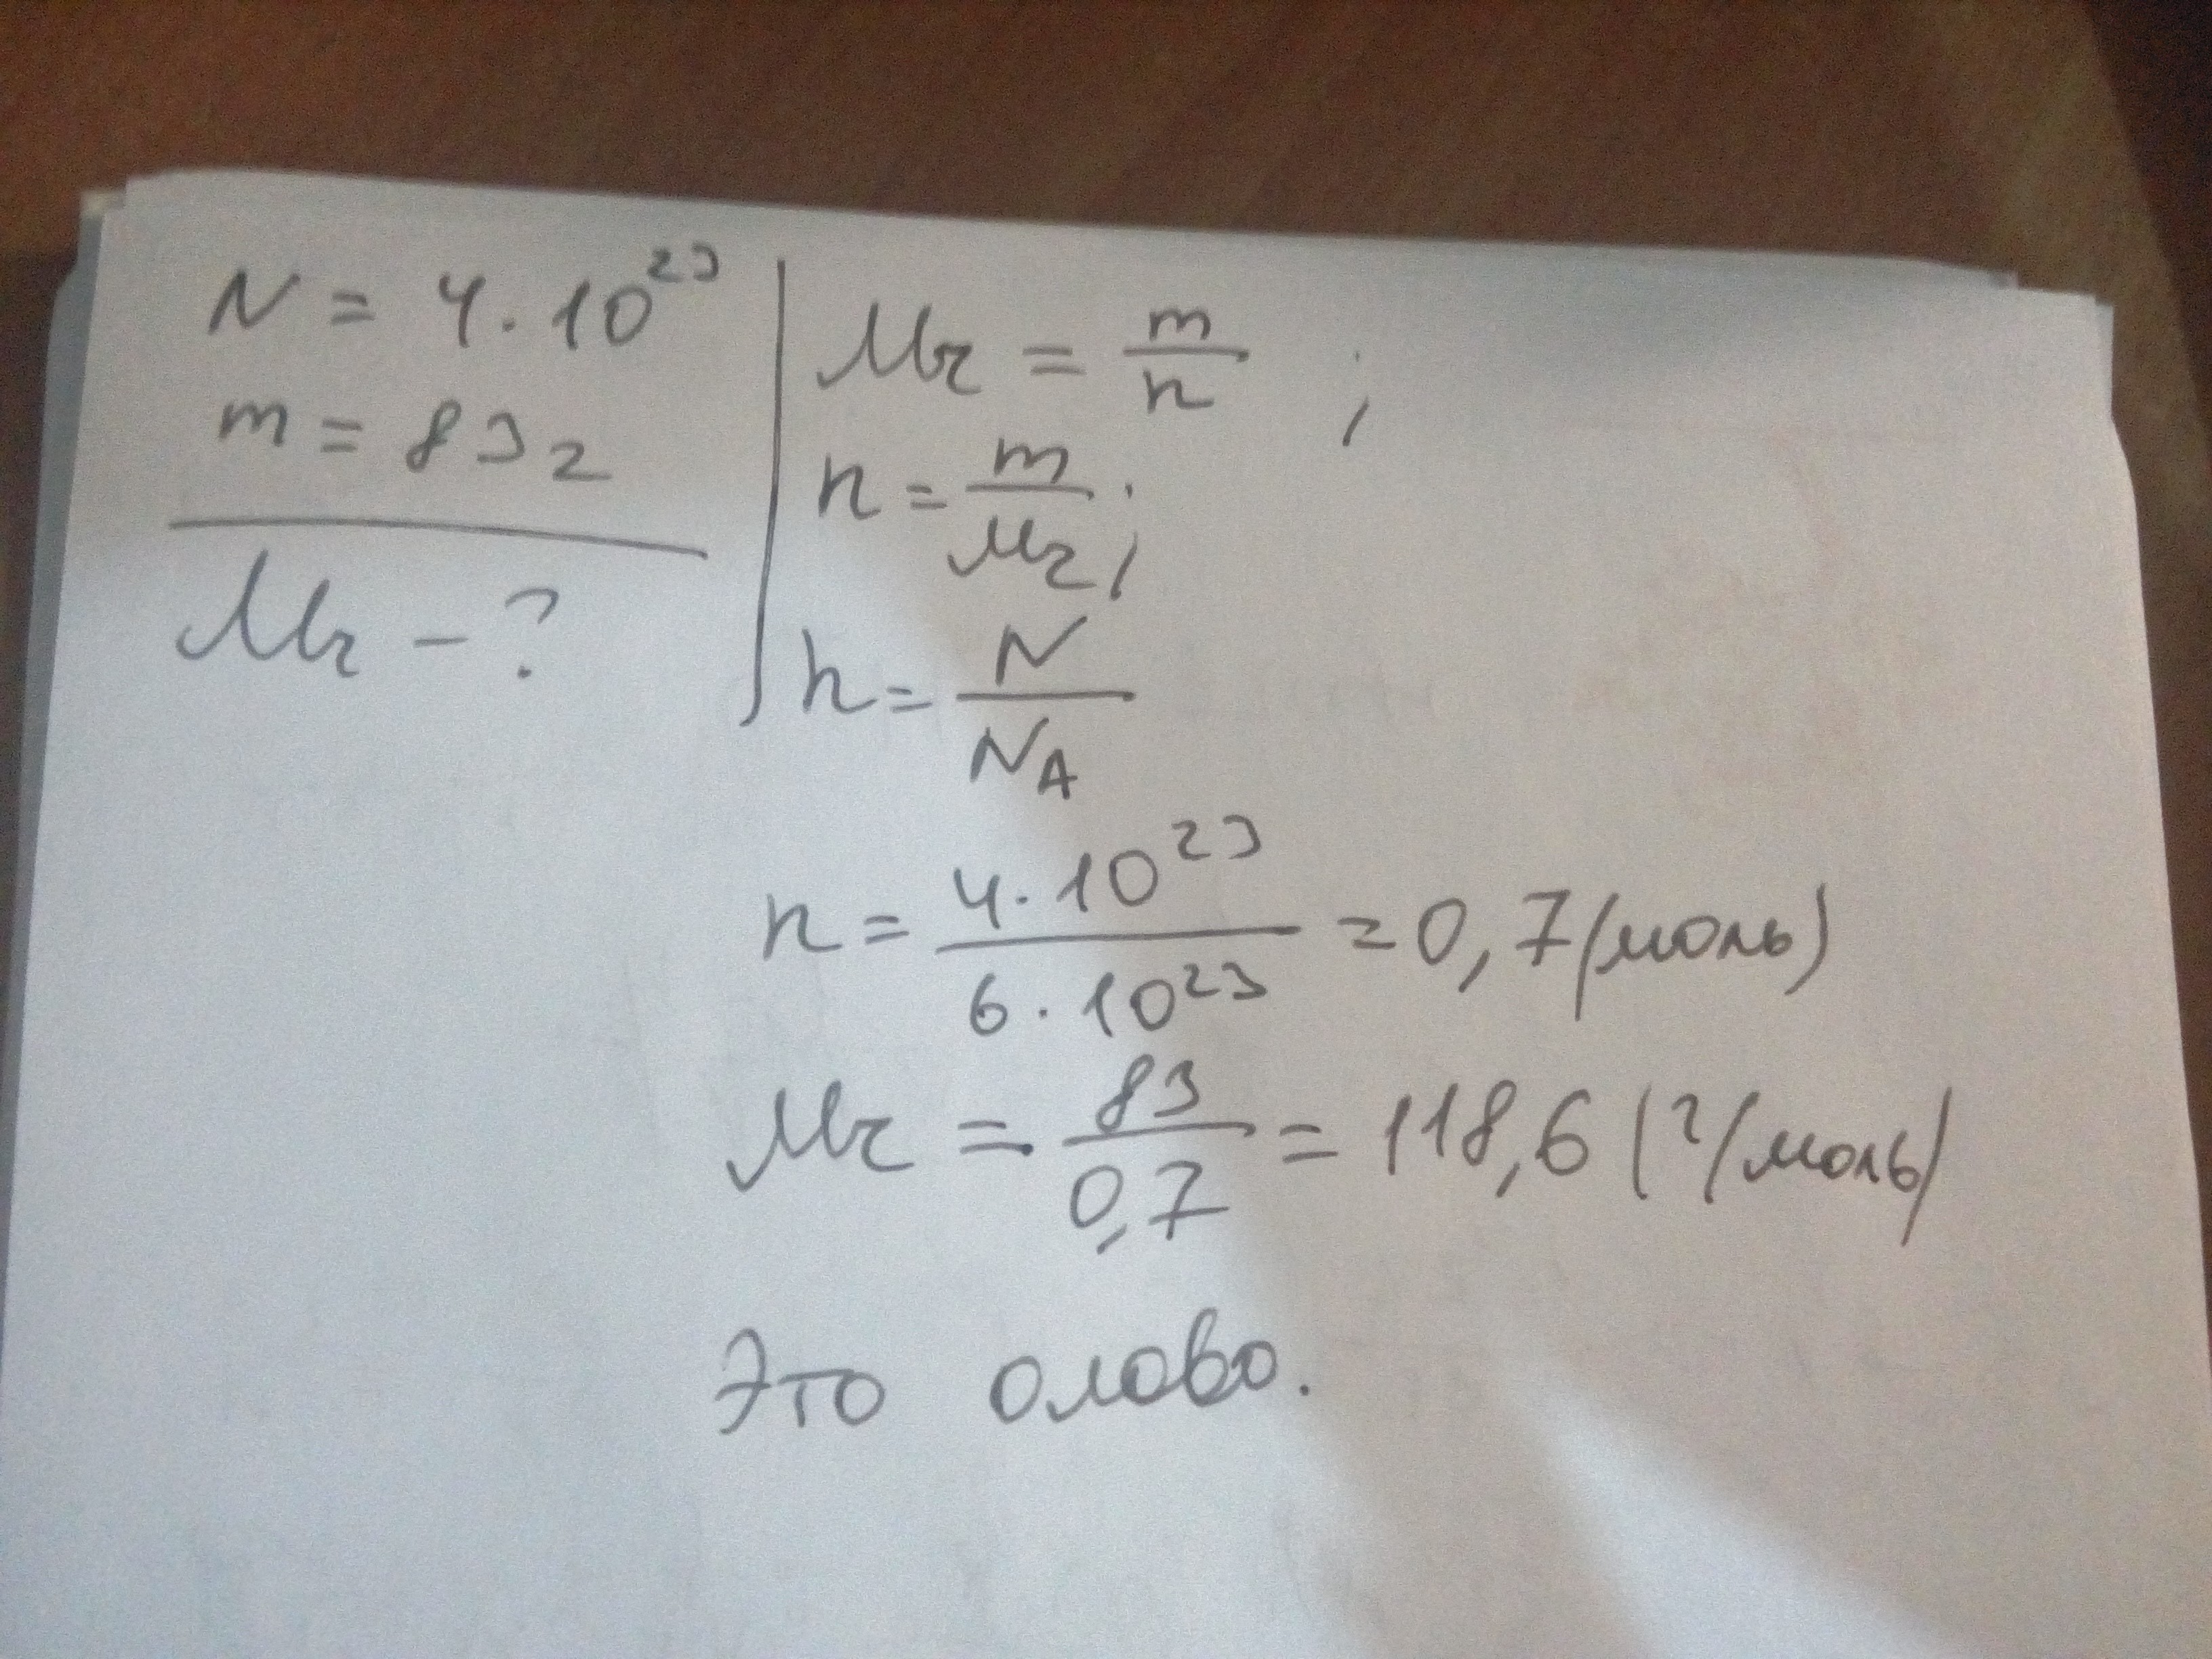 N = 4·10²³
m = 83г
Mr - ?
Mr = m/n ;
n = m/Mr ;
n = N/N_A
n = 4·10²³/6·10²³ = 0,7 (моль)
Mr = 83/0,7 = 118,6 (г/моль)
Это олово.